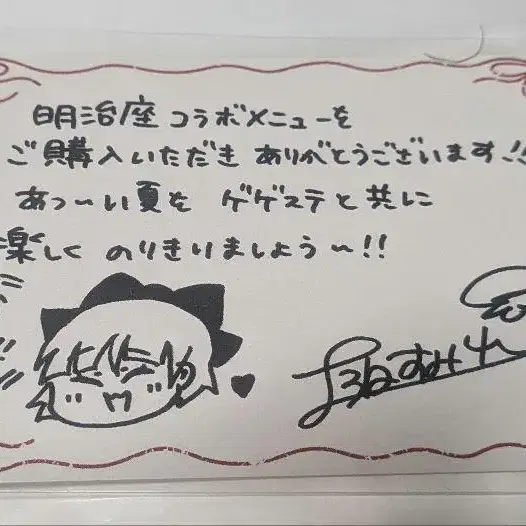 明治座コラボメニューを
ご購入いただきありがとうございます!!
あつ〜い夏をゲゲステと共に
楽しくのりきりましょう〜!!